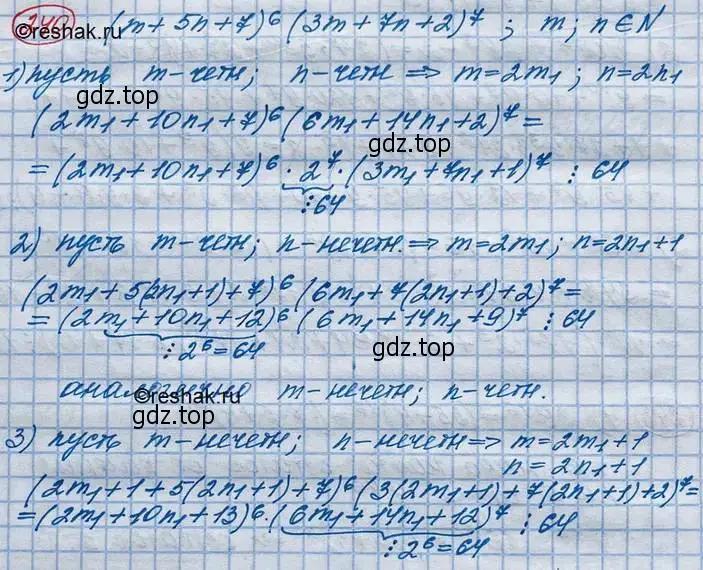 240 (m + 5n + 7)⁶ (3m + 7n + 2)⁷ ; m; n ∈ N
©reshak.ru
1) пусть m-четн; n-четн ⇒ m = 2m₁; n = 2n₁
gdz.top
(2m₁ + 10n₁ + 7)⁶ (6m₁ + 14n₁ + 2)⁷ =
gdz.top
= (2m₁ + 10n₁ + 7)⁶ · 2⁷ · (3m₁ + 7n₁ + 1)⁷ ⋮ 64
⋮ 64
2) пусть m-четн; n-нечетн. ⇒ m = 2m₁; n = 2n₁ + 1
(2m₁ + 5(2n₁ + 1) + 7)⁶ (6m₁ + 7(2n₁ + 1) + 2)⁷ =
= (2m₁ + 10n₁ + 12)⁶ (6m₁ + 14n₁ + 9)⁷ ⋮ 64
⋮ 2⁶ = 64
gdz.top
аналогично m-нечетн; n-четн.
©reshak.ru
gdz.top
3) пусть m-нечетн; n-нечетн ⇒ m = 2m₁ + 1
n = 2n₁ + 1
(2m₁ + 1 + 5(2n₁ + 1) + 7)⁶ (3(2m₁ + 1) + 7(2n₁ + 1) + 2)⁷ =
= (2m₁ + 10n₁ + 13)⁶ · (6m₁ + 14n₁ + 12)⁷ ⋮ 64
⋮ 2⁶ = 64